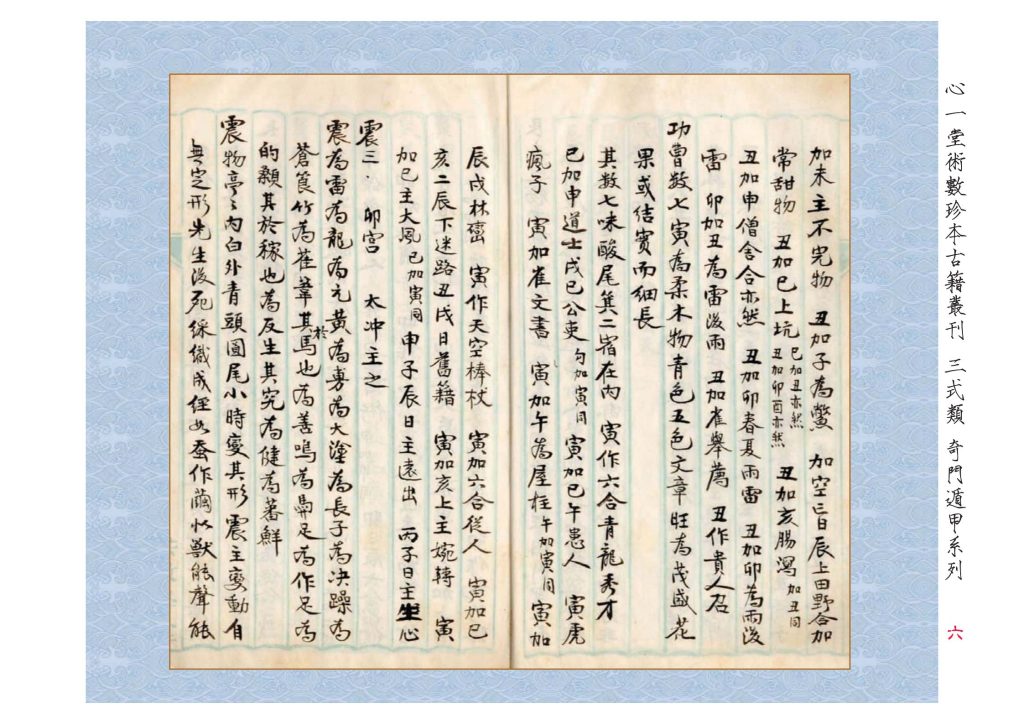 心一堂術數珍本古籍叢刊 三式類 奇門遁甲系列 六
加未主不完物 丑加子為鱉 加空亡日辰上田野合加
常甜物 丑加巳上坑 巳加丑亦然 丑加卯酉亦然 丑加亥腸瀉 加丑同
丑加申僧舍合亦然 丑加卯春夏雨雷 丑加卯為雨後
雷 卯加丑為雷後雨 丑加雀舉薦 丑作貴人召
功曹數七寅為柔木物青色五色文章旺為茂盛花
果或結實而細長
其数七味酸尾箕二宿在内 寅作六合青龍秀才
巳加申道士戌巳公吏 勾加寅同 寅加巳午患人 寅虎
瘋子 寅加雀文書 寅加午為屋柱 午加寅同 寅加
辰戌林 寅作天空棒杖 寅加六合從人 寅加巳
亥二辰下迷路丑戌日舊籍 寅加亥上主婉轉 寅
加巳主大風 巳加寅同 申子辰日主遠出 丙子日主生心
震三 卯宮 太冲主之
震為雷為龍為元黃為旉為大塗為長子為决躁為
蒼筤竹為萑葦其於馬也為善鳴為馵足為作足為
的顙其於稼也為反生其究為健為蕃鮮
震物亭亭内白外青頭圓尾小時變其形 震主變動自
無定形先生後死綵織成經如蚕作繭似獸能聲能